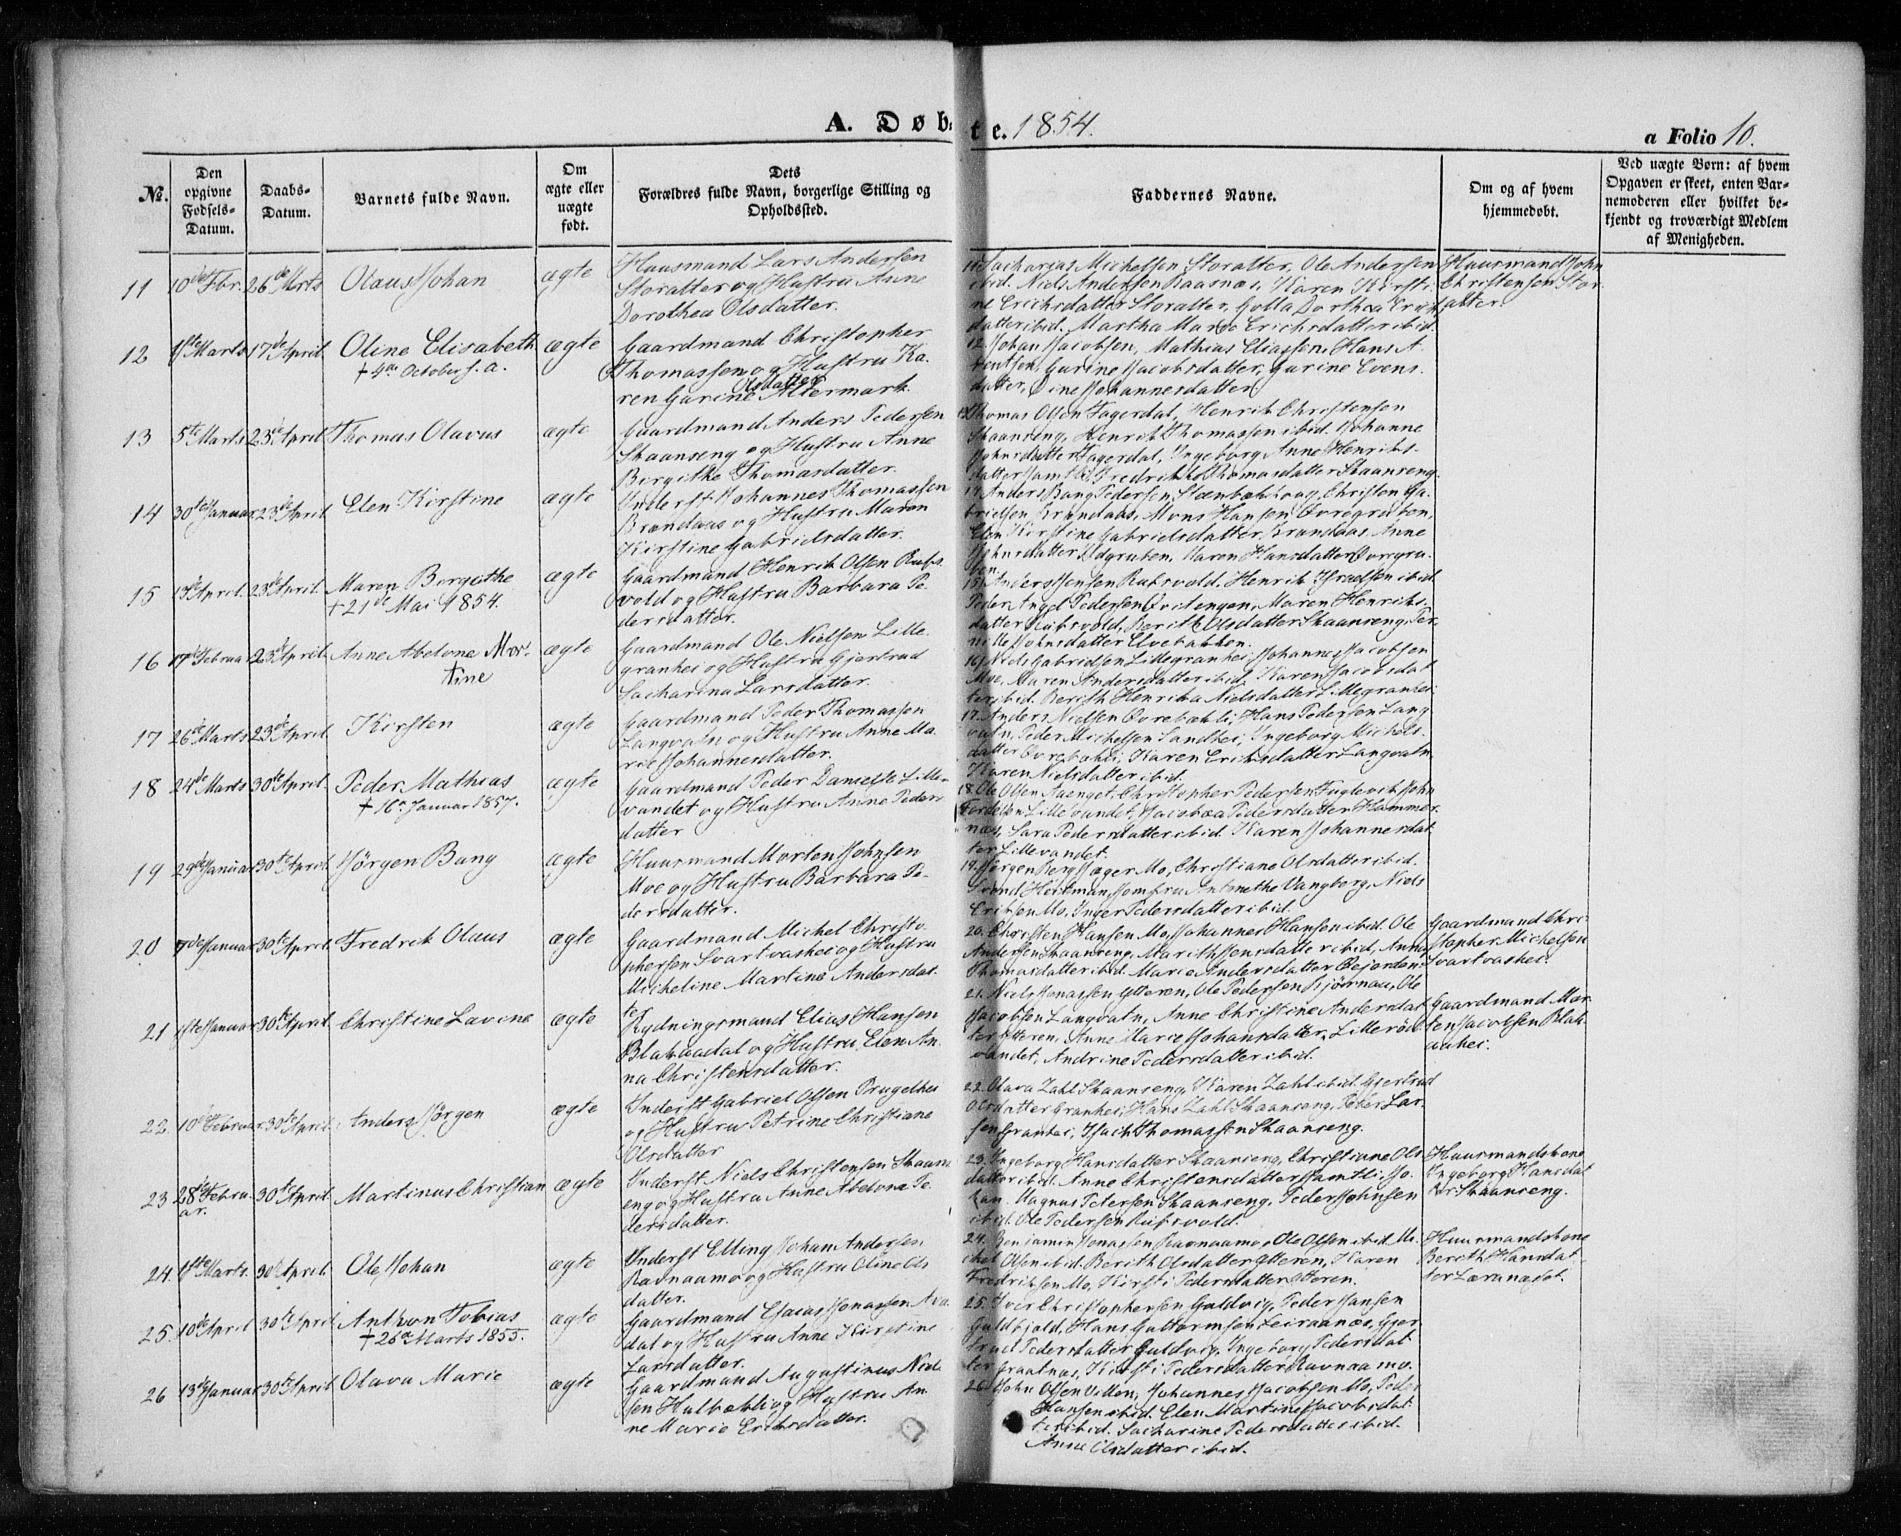 A. Døbte. 1854.
a Folio 10.
No.
Den opgivne Fødsels-Datum.
Daabs-Datum.
Barnets fulde Navn.
Om ægte eller uægte født.
Dets Forældres fulde Navn, borgerlige Stilling og Opholdssted.
Faddernes Navne.
Om og af hvem hjemmedøbt.
Ved uægte Børn: af hvem Opgaven er skeet, enten Barnemoderen eller hvilket bekjendt og troværdigt Medlem af Menigheden.
11 10de Fbr. 26de Marts Olaus Johan ægte
Huusmand Lars Andersen
Storalter og Hustru Anne
Dorothea Olsdatter.
11. Sacharias Michelsen Storalter, Ole Andersen
ibid. Niels Andersen Raanæs, Karen Kirsti-
ne Erichsdatter Storalter, Golla Dorthea Erich
datter ibid. Martha Marie Erichsdatter ibid.
Huusmand John
Christensen Stor-
alter.
12 1ste Marts 17de April Oline Elisabeth ægte
+ 4de October s. a.
Gaardmand Christopher
Thomassen og Hustru Ka-
ren Gurine Olsdatter Altermark
12. Johan Jacobsen, Mathias Eliassen, Hans A-
Gurine Jacobsdatter, Gurine Evens-
datter, Oline Johannesdatter
13 5te Marts 23de April Thomas Olavus ægte
Gaardmand Anders Pedersen
Skaanseng og Hustru Anne
Bergithe Thomasdatter.
13. Thomas Olsen Fagerdal, Henrik Christensen
Skaanseng, Henrik Thomassen ibid. Johanne
Johnsdatter Fagerdal, Ingeborg Anne Henriks-
datter samt Fredrikke Thomasdatter Skaanseng.
14 30te Januar 23de April Elen Kirstine ægte
Inderst Johannes Thomassen
Brandaas og Hustru Maren
Kirstine Gabrielsdatter.
14. Anders Bang Pedersen, Christen Ga-
brielsen Brandaas, Mons Hansen Øvregruben,
Elen Kirstine Gabrielsdatter, Brandaas, Anne
Johnsdatter Ydgruben, Karen Hansdatter Øvregru-
ben.
15 1de April 23de April Maren Bergithe ægte
+ 21de Mai 1854.
Gaardmand Henrik Olsen Rufs-
vold og Hustru Barbara Pe-
dersdatter.
15. Anders Jensen Rufsvold, Henrik Isradsen ibid.
Peder Angel Pedersen Hvitengen, Maren Henriks-
datter Rufsvold, Berith Olsdatter Skaanseng, Per-
nille Johnsdatter Elvebakken.
16 17de Februar 23de April Anne Abelone Mor-
tine ægte
Gaardmand Ole Nielsen Lille-
granhei og Hustru Gjertrud
Sacharina Larsdatter.
16. Niels Gabrielsen Lillegranhei, Johannes Jacobsen
Moe, Maren Andersdatter ibid. Karen Jacobsdat-
ter ibid. Berith Henrika Nielsdatter Lillegranhei.
17 26de Marts 23de April Kirsten ægte
Gaardmand Peder Thomassen
Langvatn og Hustru Anne Ma-
rie Johannesdatter.
17. Anders Nielsen Øvrebækli, Hans Pedersen Lang-
vatn, Peder Michelsen Sandhei, Ingeborg Michels-
datter Øvrebækli, Karen Erichsdatter Langvatn
Karen Nielsdatter ibid.
18 24de Marts 30te April Peder Mathias ægte
+ 16de Januar 1857.
Gaardmand Peder Danielse Lille-
vandet og Hustru Anne Peders-
datter
18. Ole Olsen Aaenget, Christopher Pedersen Fuglevik, John
Lillevandet, Jacobæa Pedersdatter Hammer-
næs, Sara Pedersdatter ibid. Karen Johannesdat-
ter Lillevandet.
19 29de Januar 30te April Jørgen Bang ægte
Huusmand Morten Johnsen
Moe og Hustru Barbara Pe-
dersdatter.
19. Jørgen Berg Jæger Mo, Christiane Olsdatter ibid.
Svend Heitman, Jomfru Antonethe Vangberg, Niels
Eriksen Mo, Inger Pedersdatter ibid.
20 7de Januar 30te April Fredrik Olaus ægte
Gaardmand Michel Christo-
phersen Svartvashei og Hustru
Micheline Martine Andersdat-
ter
20. Christen Hansen Mo, Johannes Hansen ibid. Ole
Andersen Skaanseng, Marith Jensdatter ibid, Anna
Thomasdatter ibid. Marie Andersdatter Beierden.
Gaardmand Chri-
stopher Michelsen
Svartvashei.
21 1ste Januar 30te April Christine Lavine ægte
Rydningsmand Elias Hansen
Blakaadal og Hustru Elen An-
na Christensdatter.
21. Niels Jonassen Ytteren, Ole Pedersen Bjørnaa, Ole
Jacobsen Langvatn, Anne Christine Andersdat-
ter Ytteren, Anne Marie Johansdatter, Lillerød-
vandet, Andrine Pedersdatter ibid.
Gaardmand Mor-
ten Jacobsen Blak-
aahei.
22. 10de Februar 30te April Anders Jørgen ægte
Inderst Gabriel Olsen Prugelhei
og Hustru Petrine Christiane
Olsdatter
22. Olava Zahl Skaanseng, Karen Zahl ibid. Gjertrud
Olsdatter Granhei, Hans Zahl Skaanseng, Peder Lar-
sen Granhei, Isach Thomassen Skaanseng.
23 28de Febru-
ar. 30te April Martinus Christian ægte
Inderst Niels Christensen Skaans-
eng og Hustru Anne Abelona Pe-
dersdatter.
23. Ingeborg Hansdatter Skaanseng, Christiane Ols-
datter ibid. Anne Christensdatter samtl: Jo-
han Magnus Petersen Skaanseng. Peder Johnsen
ibid. Ole Pedersen Rufsvold.
Huusmandskone
Ingeborg Hansdat-
ter Skaanseng.
24 1ste Marts. 30te April Ole Johan ægte
Inderst Elling Johan Andersen
Ravnaamo og Hustru Oline Ols-
datter.
24. Benjamin Jonassen Ravnaamo, Ole Olsen ibid. Mi-
chel Olsen ibid. Berith Olsdatter Ytteren, Karen
Fredriksen Mo, Kirsti Pedersdatter Ytteren.
Huusmandskone
Berith Hansdat-
ter Læranæset.
25 10de April 30te April Anthon Tobias ægte
+ 26de Marts 1855.
Gaardmand Esaias Jonassen Ava-
dal og Hustru Anne Kirstine
Larsdatter.
25. Iver Christophersen Guldvig, Peder Hansen
Guldhjald, Hans Guttormsen Leiraanæs, Gjer-
trud Pedersdatter Guldvig, Ingeborg Pedersdat-
ter Graatnæs, Kirsti Pedersdatter Ravnaamo.
26 13de Januar 30te April Olava Marie ægte
Gaardmand Augustinus Niel-
sen Hulbækli og Hustru An-
ne Marie Erichsdatter.
26. John Olsen Villen, Johannes Jacobsen Mo, Peder
Hansen ibid. Elen Martine Jacobsdat-
ter ibid. Sacharine Pedersdatter ibid.
Anne Olsdatter ibid.